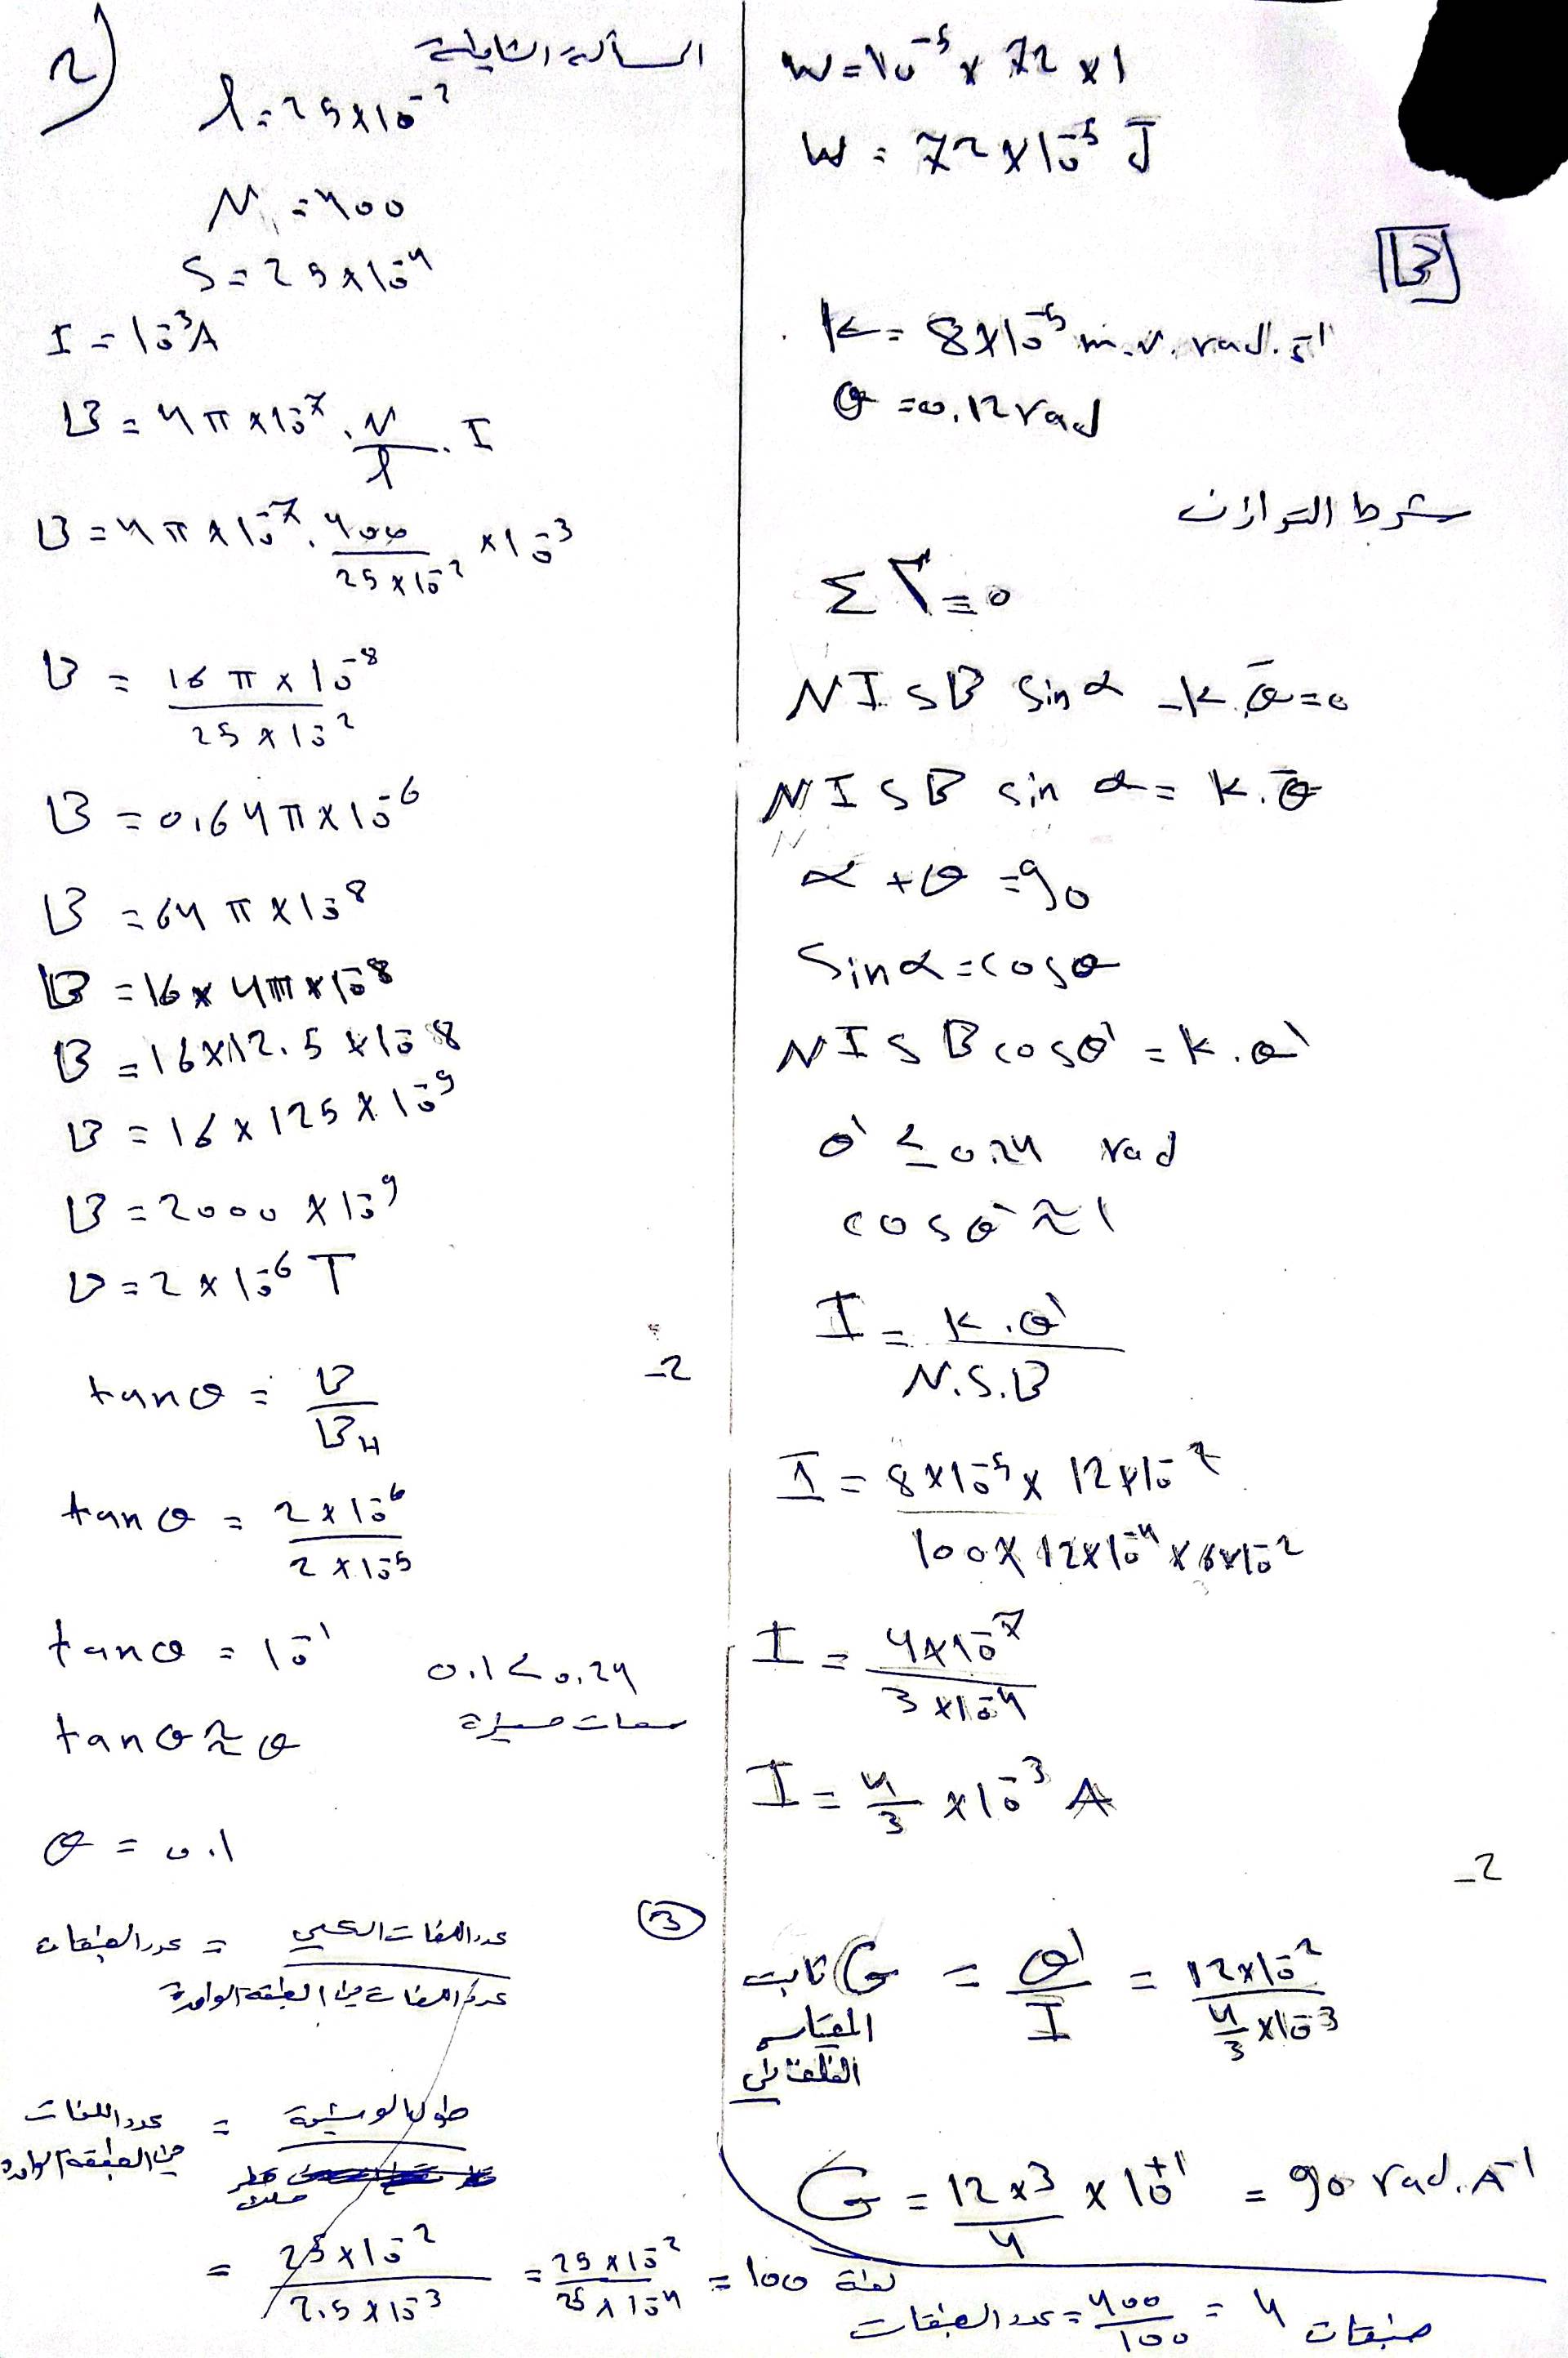 2)
المسألة الثانية
l = 25×10⁻²
N = 400
S = 25×10⁻⁴
I = 10⁻³A
B = 4π×10⁻⁷ . N/l . I
B = 4π×10⁻⁷ . 400/25×10⁻² ×10⁻³
B = 16π×10⁻⁸/25×10⁻²
B = 0,64π×10⁻⁶
B = 64π×10⁻⁸
B = 16×4π×10⁻⁸
B = 16×12.5×10⁻⁸
B = 16×125×10⁻⁹
B = 2000×10⁻⁹
B = 2×10⁻⁶ T
-2
tanθ = B/B_H
tanθ = 2×10⁻⁶/2×10⁻⁵
tanθ = 10⁻¹
0.1<0.24
tanθ ≈ θ
سعات صغيرة
θ = 0.1
③
عدد الطبقات = عدد اللفات الكلي/عدد اللفات في الطبقة الواحدة
عدد اللفات في الطبقة الواحدة = طول الوشيعة/قطر سلك
= 25×10⁻²/2.5×10⁻³ = 25×10⁻²/25×10⁻⁴ = 100 لفة
عدد الطبقات = 400/100 = 4 طبقات
W = 10⁻⁵×72×1
W = 72×10⁻⁵ J
B
K = 8×10⁻⁵ m.N.rad.⁻¹
θ = 0.12 rad
شرط التوازن
ΣΓ = 0
NISB sinα - K.θ̄ = 0
NISB sin α = K.θ̄
α + θ = 90
Sinα = cosθ
NISB cosθ' = K.θ'
θ' ≤ 0.24 rad
cosθ' ≈ 1
I = K.θ'/N.S.B
I = 8×10⁻⁵×12×10⁻²/100×12×10⁻⁴×6×10⁻²
I = 4×10⁻⁷/3×10⁻⁴
I = 4/3 ×10⁻³ A
-2
G ثابت المقياس الغلفاني = θ'/I = 12×10⁻²/4/3×10⁻³
G = 12×3/4 ×10⁺¹ = 90 rad.A⁻¹